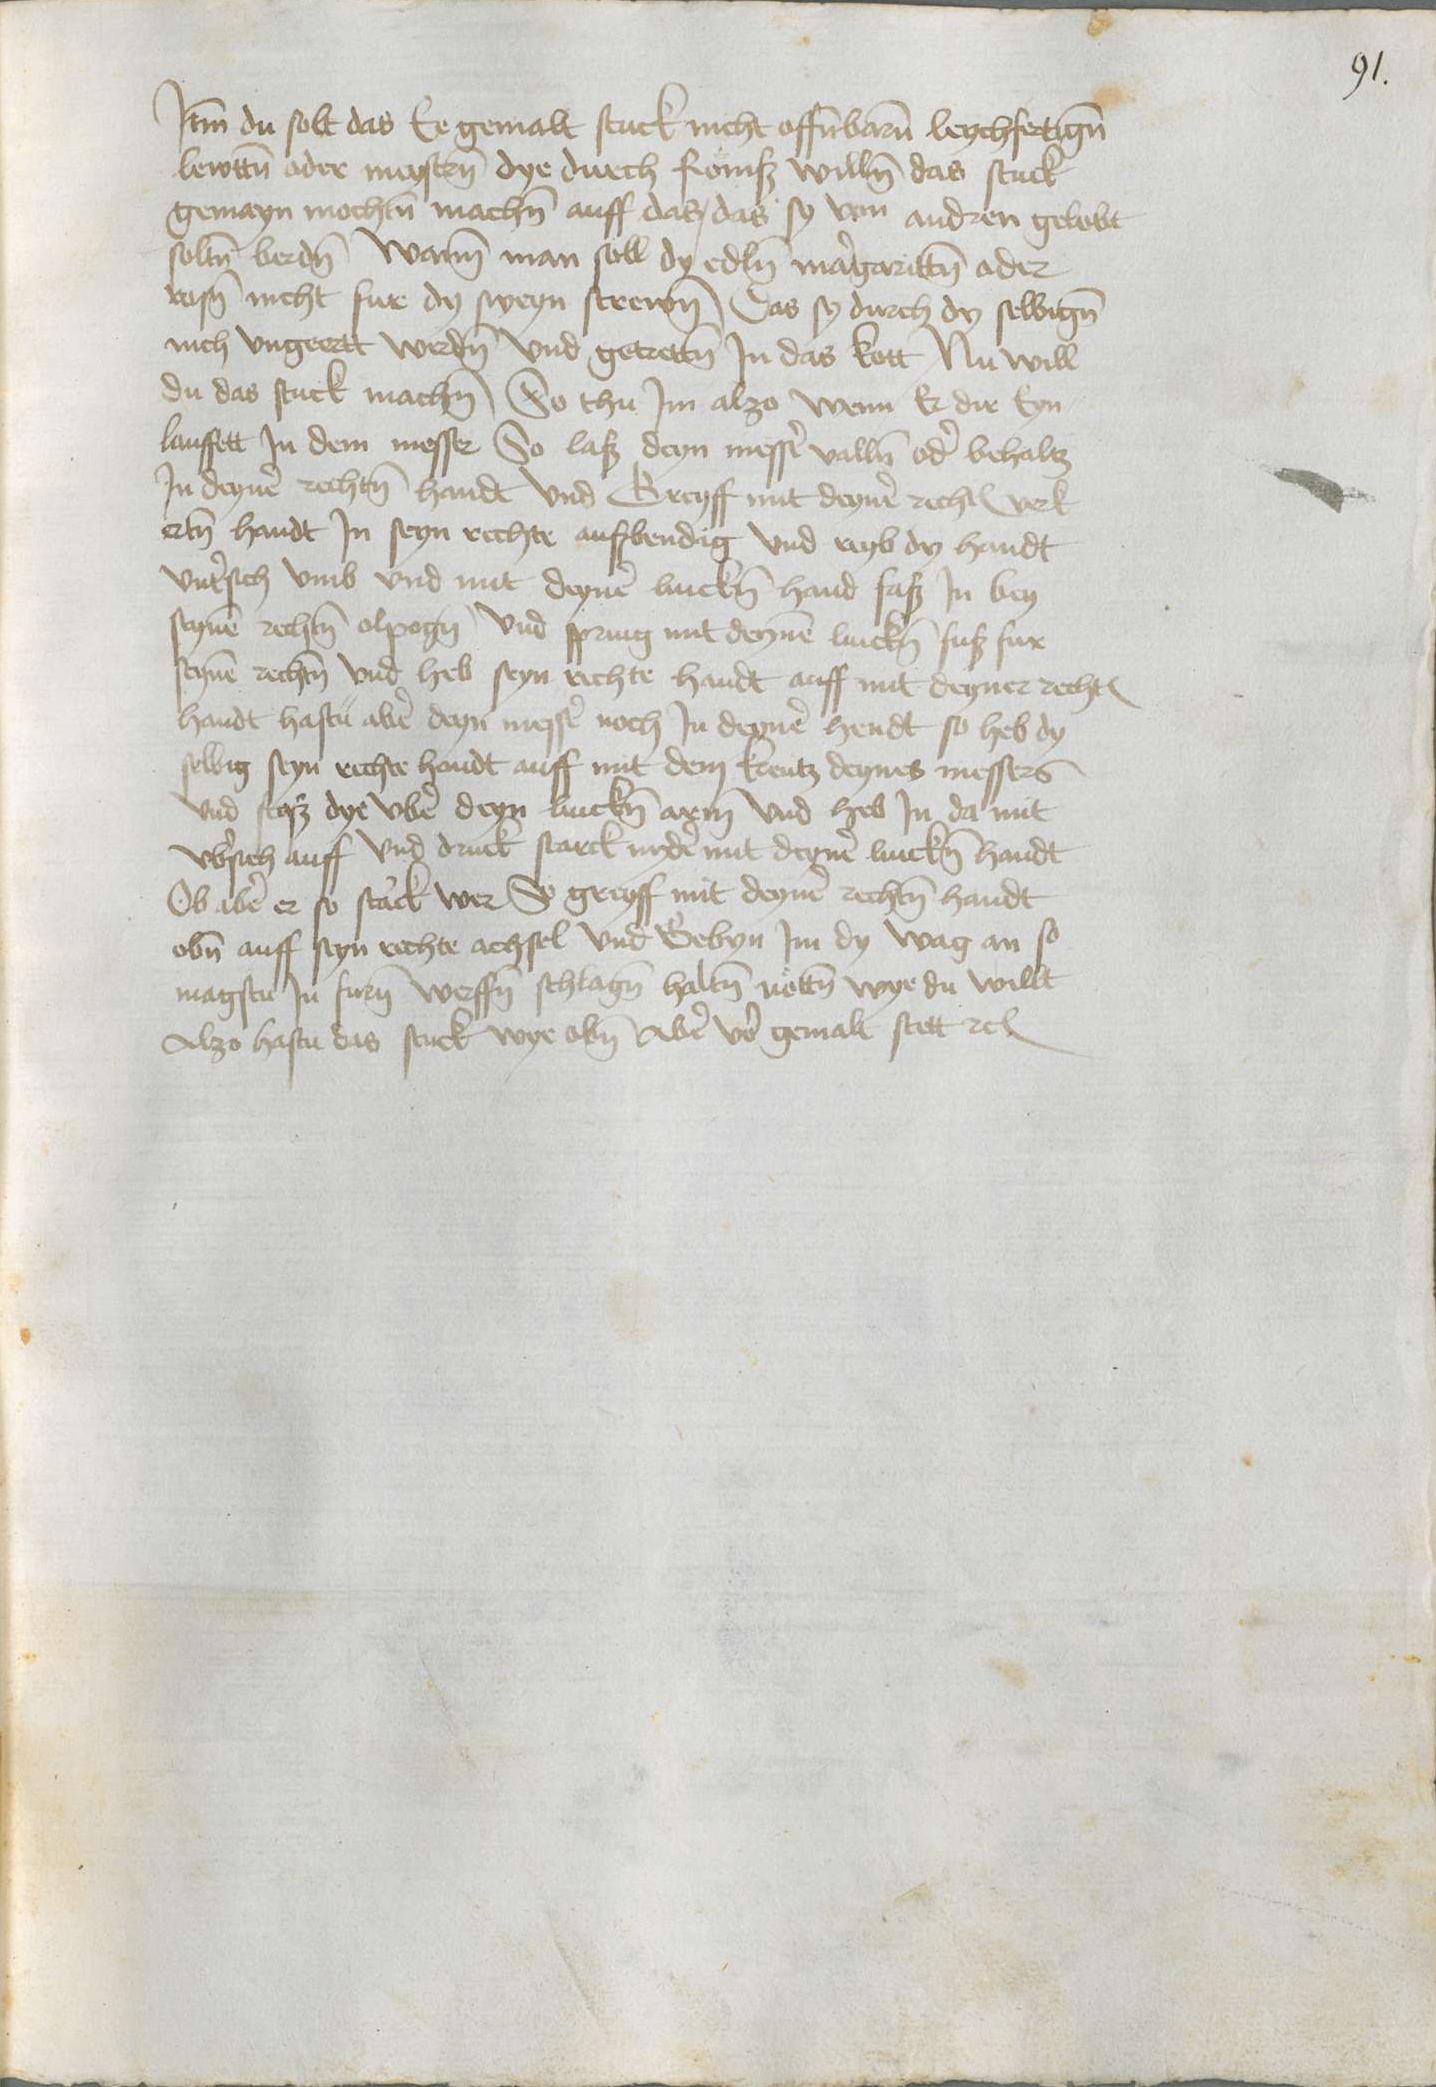 91.
Itm̄ du solt das Ee gemalt stuck nicht offn̄barn̄ leychfertign̄
lewttn̄ oder meystrn̄ dye durch römß willn̄ das stuck
gemayn mochtn̄ machn̄ auff das / das sy von andren gelobt
soltn̄ berdn̄ Wann̄ man soll dy edln̄ margarittn̄ oder
rosn̄ nicht fur dy sweyn strewn̄ Das sy durch dy selbign̄
nich vngeertt werdn̄ vnd getrettn̄ In das kott Nu will
du das stuck machn̄ So thu Im alzo wenn Er dir Eyn
lauffett In dem messer So laß deyn messer valln̄ oder behaltz
In deyner rechtn̄ handt vnd Greyff mit deyner recht verk
ertn̄ handt In seyn rechte außbendig vnd reyb dy handt
vntersich vmb vnd mit deyner linckn̄ hand faß In bey
seynē rechtn̄ elpogn̄ vnd spring mit deynē linckn̄ fuß fur
seynē rechtn̄ vnd heb seyn rechte handt auff mit deyner recht
handt hastu aber deyn messer noch In deyner hendt so heb dy
selbig seyn rechte handt auff mit dem kreutz deynes messers
vnd seytz dye vber deyn linckn̄ arm̄ vnd heb In da mit
vbersich auff vnd druck starck nyder mit deyner linckn̄ handt
Ob aber er so starck wer So greyff mit deyner rechtn̄ handt
obn̄ auff seyn rechte achsel vnd Gebyn Im dy wag an so
magstu In furn̄ werffn̄ schlagn̄ haltn̄ nöttn̄ wye du willt
Alzo hastu das stuck wye obn̄ Aber vor gemalt stett rc